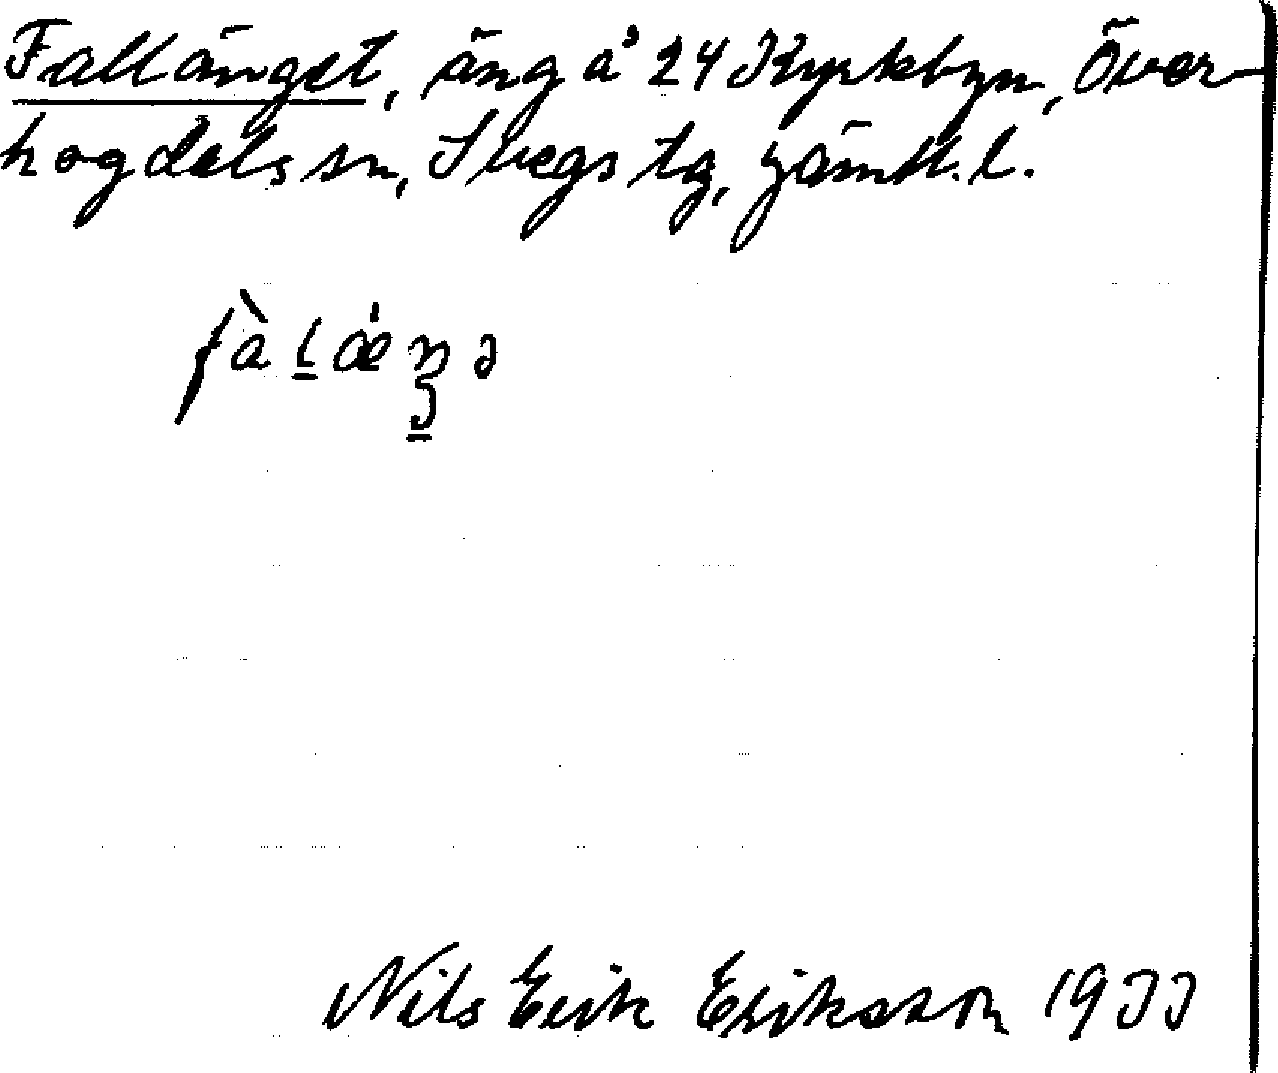 Fallänget, äng å 24 Kyrkbyn, Över-
hogdals sn, Svegs tg, Jämtl. l.
fàl̠ǽŋ̠ə
Nils Erik Eriksson 1933